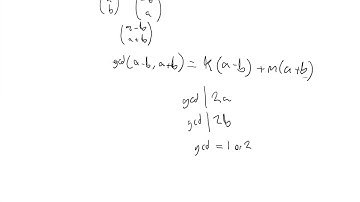 (a b) (-b a)
(a-b a+b)
gcd(a-b, a+b) = k(a-b) + m(a+b)
gcd | 2a
gcd | 2b
gcd = 1 or 2